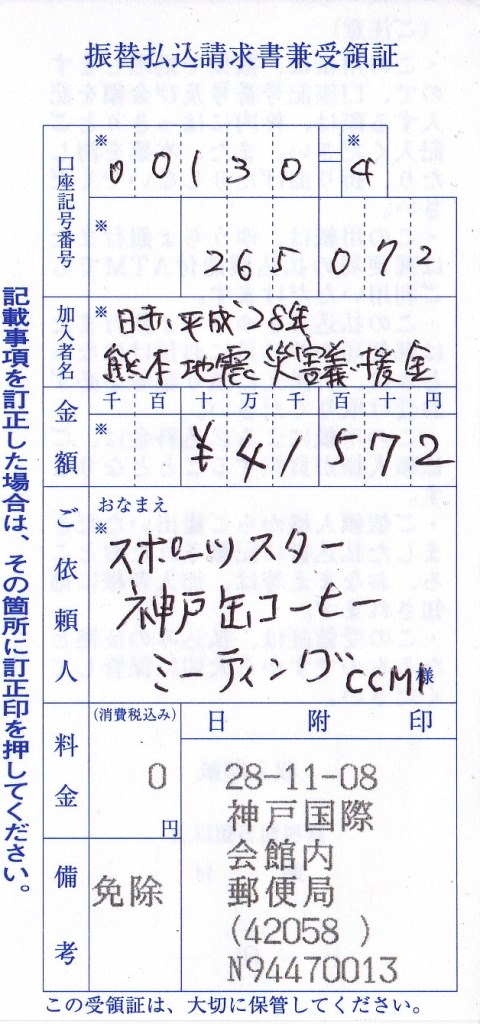 振替払込請求書兼受領証
口座記号番号
※ 00130 ※ 4
※ 265072
加入者名
※ 日赤、平成28年
熊本地震災害義援金
金額
千 百 十 万 千 百 十 円
※ ¥41572
ご依頼人
おなまえ
※ スポーツスター
神戸缶コーヒー
ミーティング CCM 様
料金
(消費税込み)
0
円
備考
免除
日 附 印
28-11-08
神戸国際
会館内
郵便局
(42058 )
N94470013
この受領証は、大切に保管してください。
記載事項を訂正した場合は、その箇所に訂正印を押してください。